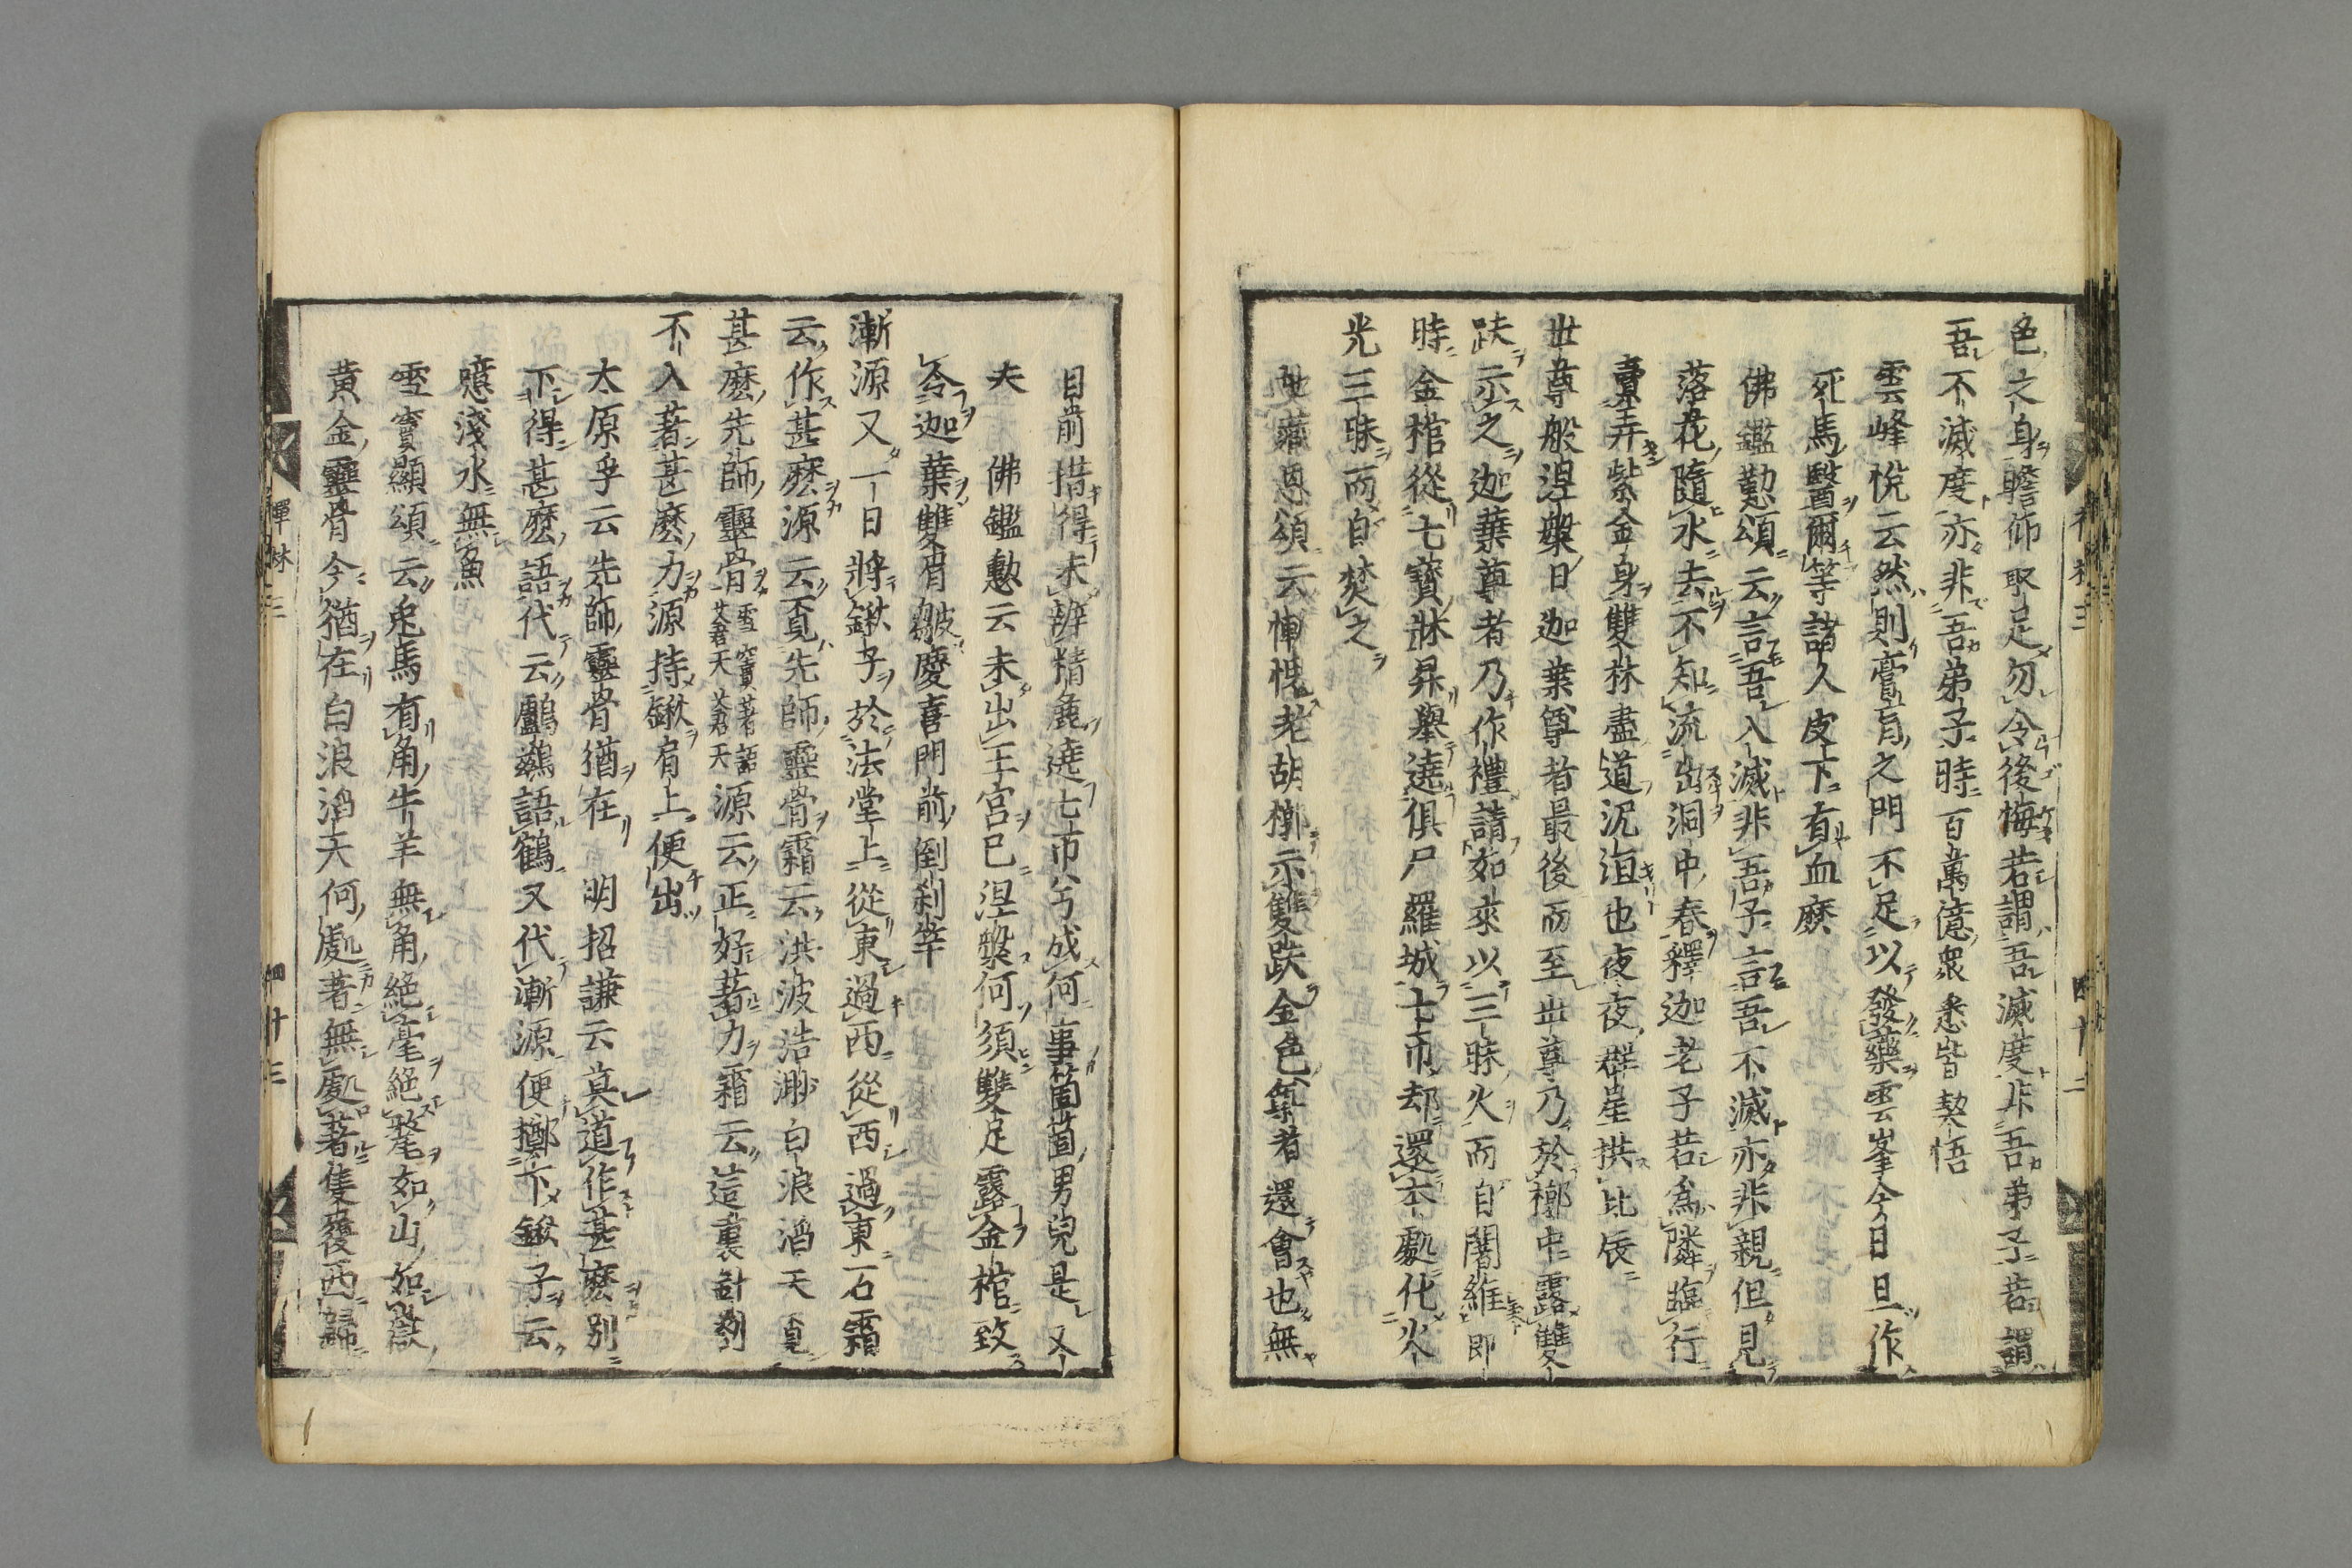 色之身瞻仰取足勿令後悔若謂吾滅度非吾弟子若謂
吾不滅度亦非吾弟子時百萬億衆悉皆契悟
雲峰悅云然則膏肓之門不足以發藥雲峯今日且作
死馬醫爾等諸人皮下有血麽
佛鑑懃頌云言吾入滅非吾子言吾不滅亦非親但見
落花隨水去不知流出洞中春釋迦老子若爲隣臨行
賣弄紫金身雙林盡道沉洎也夜夜群星拱北辰
世尊般涅槃日迦葉尊者最後而至世尊乃於槨中露雙
趺示之迦葉尊者乃作禮請如來以三昧火而自闍維即
時金棺從七寶牀昇舉遶俱尸羅城七帀却還本處化火
光三昧而自焚之
地藏恩頌云慚愧老胡槨示雙趺金色衆者還會也無
禪林三
四十二
目前措得未辨精麁遶七帀兮成何事箇箇男兒是丈
夫 佛鑑懃云未出王宮已涅槃何須雙足露金棺致
令迦葉雙眉皺慶喜門前倒刹竿
漸源又一日將鍬子於法堂上從東過西從西過東石霜
云作甚麽源云覓先師靈骨霜云洪波浩渺白浪滔天覓
甚麽先師靈骨雪竇著語蒼天蒼天源云正好著力霜云這裏針劄
不入著甚麽力源持鍬肩上便出
太原孚云先師靈骨猶在 明招謙云莫道作甚麽別
下得甚麽語代云鸕鷀語鶴又代漸源便擲下鍬子云
憶淺水無魚
雪竇顯頌云兎馬有角牛羊無角絕毫絕氂如山如嶽
黄金靈骨今猶在白浪滔天何處著無處著隻履西歸
禪林三
四十三